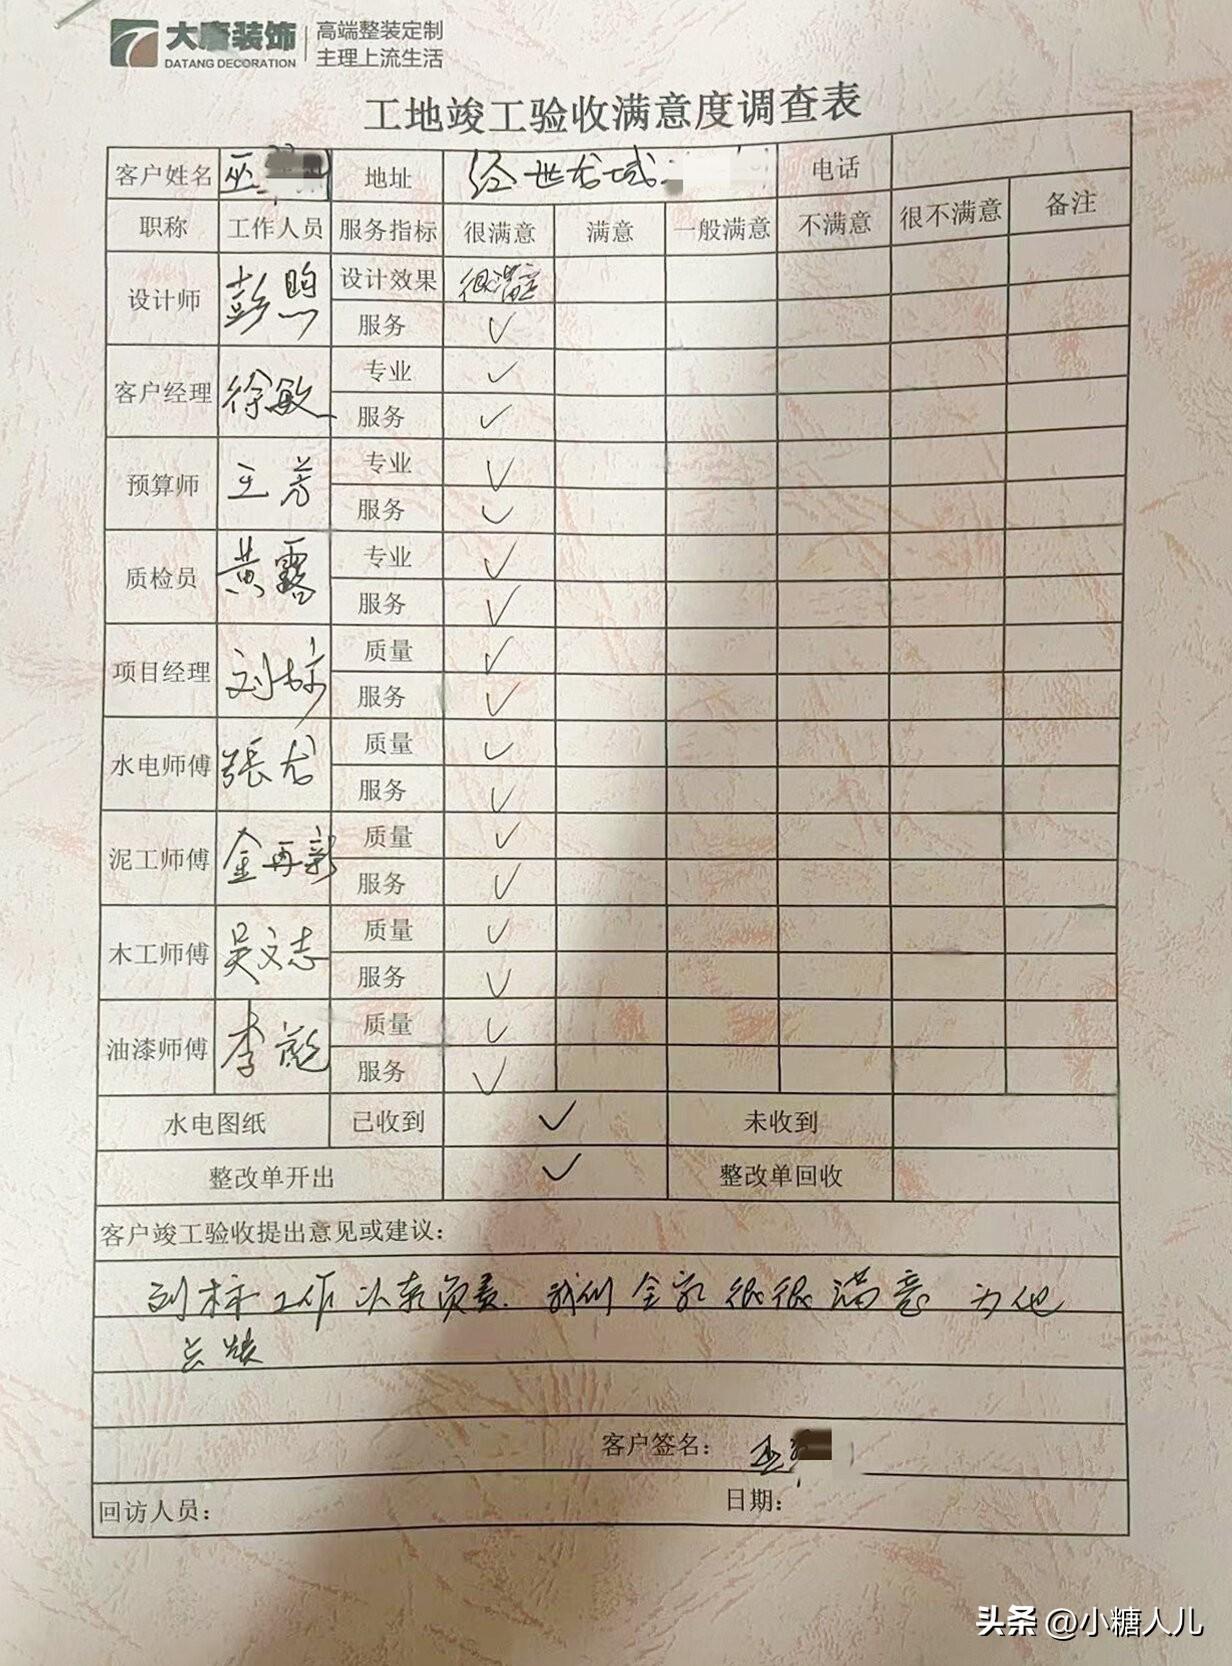 大唐装饰 高端整装定制
DATANG DECORATION 主理上流生活
工地竣工验收满意度调查表
客户姓名 巫 地址 经世龙城 电话
职称 工作人员 服务指标 很满意 满意 一般满意 不满意 很不满意 备注
设计师 彭煦 设计效果 很满意
服务 ✓
客户经理 徐敏 专业 ✓
服务 ✓
预算师 王芳 专业 ✓
服务 ✓
质检员 黄露 专业 ✓
服务 ✓
项目经理 刘标 质量 ✓
服务 ✓
水电师傅 張龙 质量 ✓
服务 ✓
泥工师傅 金再新 质量 ✓
服务 ✓
木工师傅 吴文志 质量 ✓
服务 ✓
油漆师傅 李彪 质量 ✓
服务 ✓
水电图纸 已收到 ✓ 未收到
整改单开出 ✓ 整改单回收
客户竣工验收提出意见或建议：
刘标工作认真负责. 我们全家很很满意 为他
点赞
客户签名： 巫
回访人员： 日期：
头条 @小糖人儿